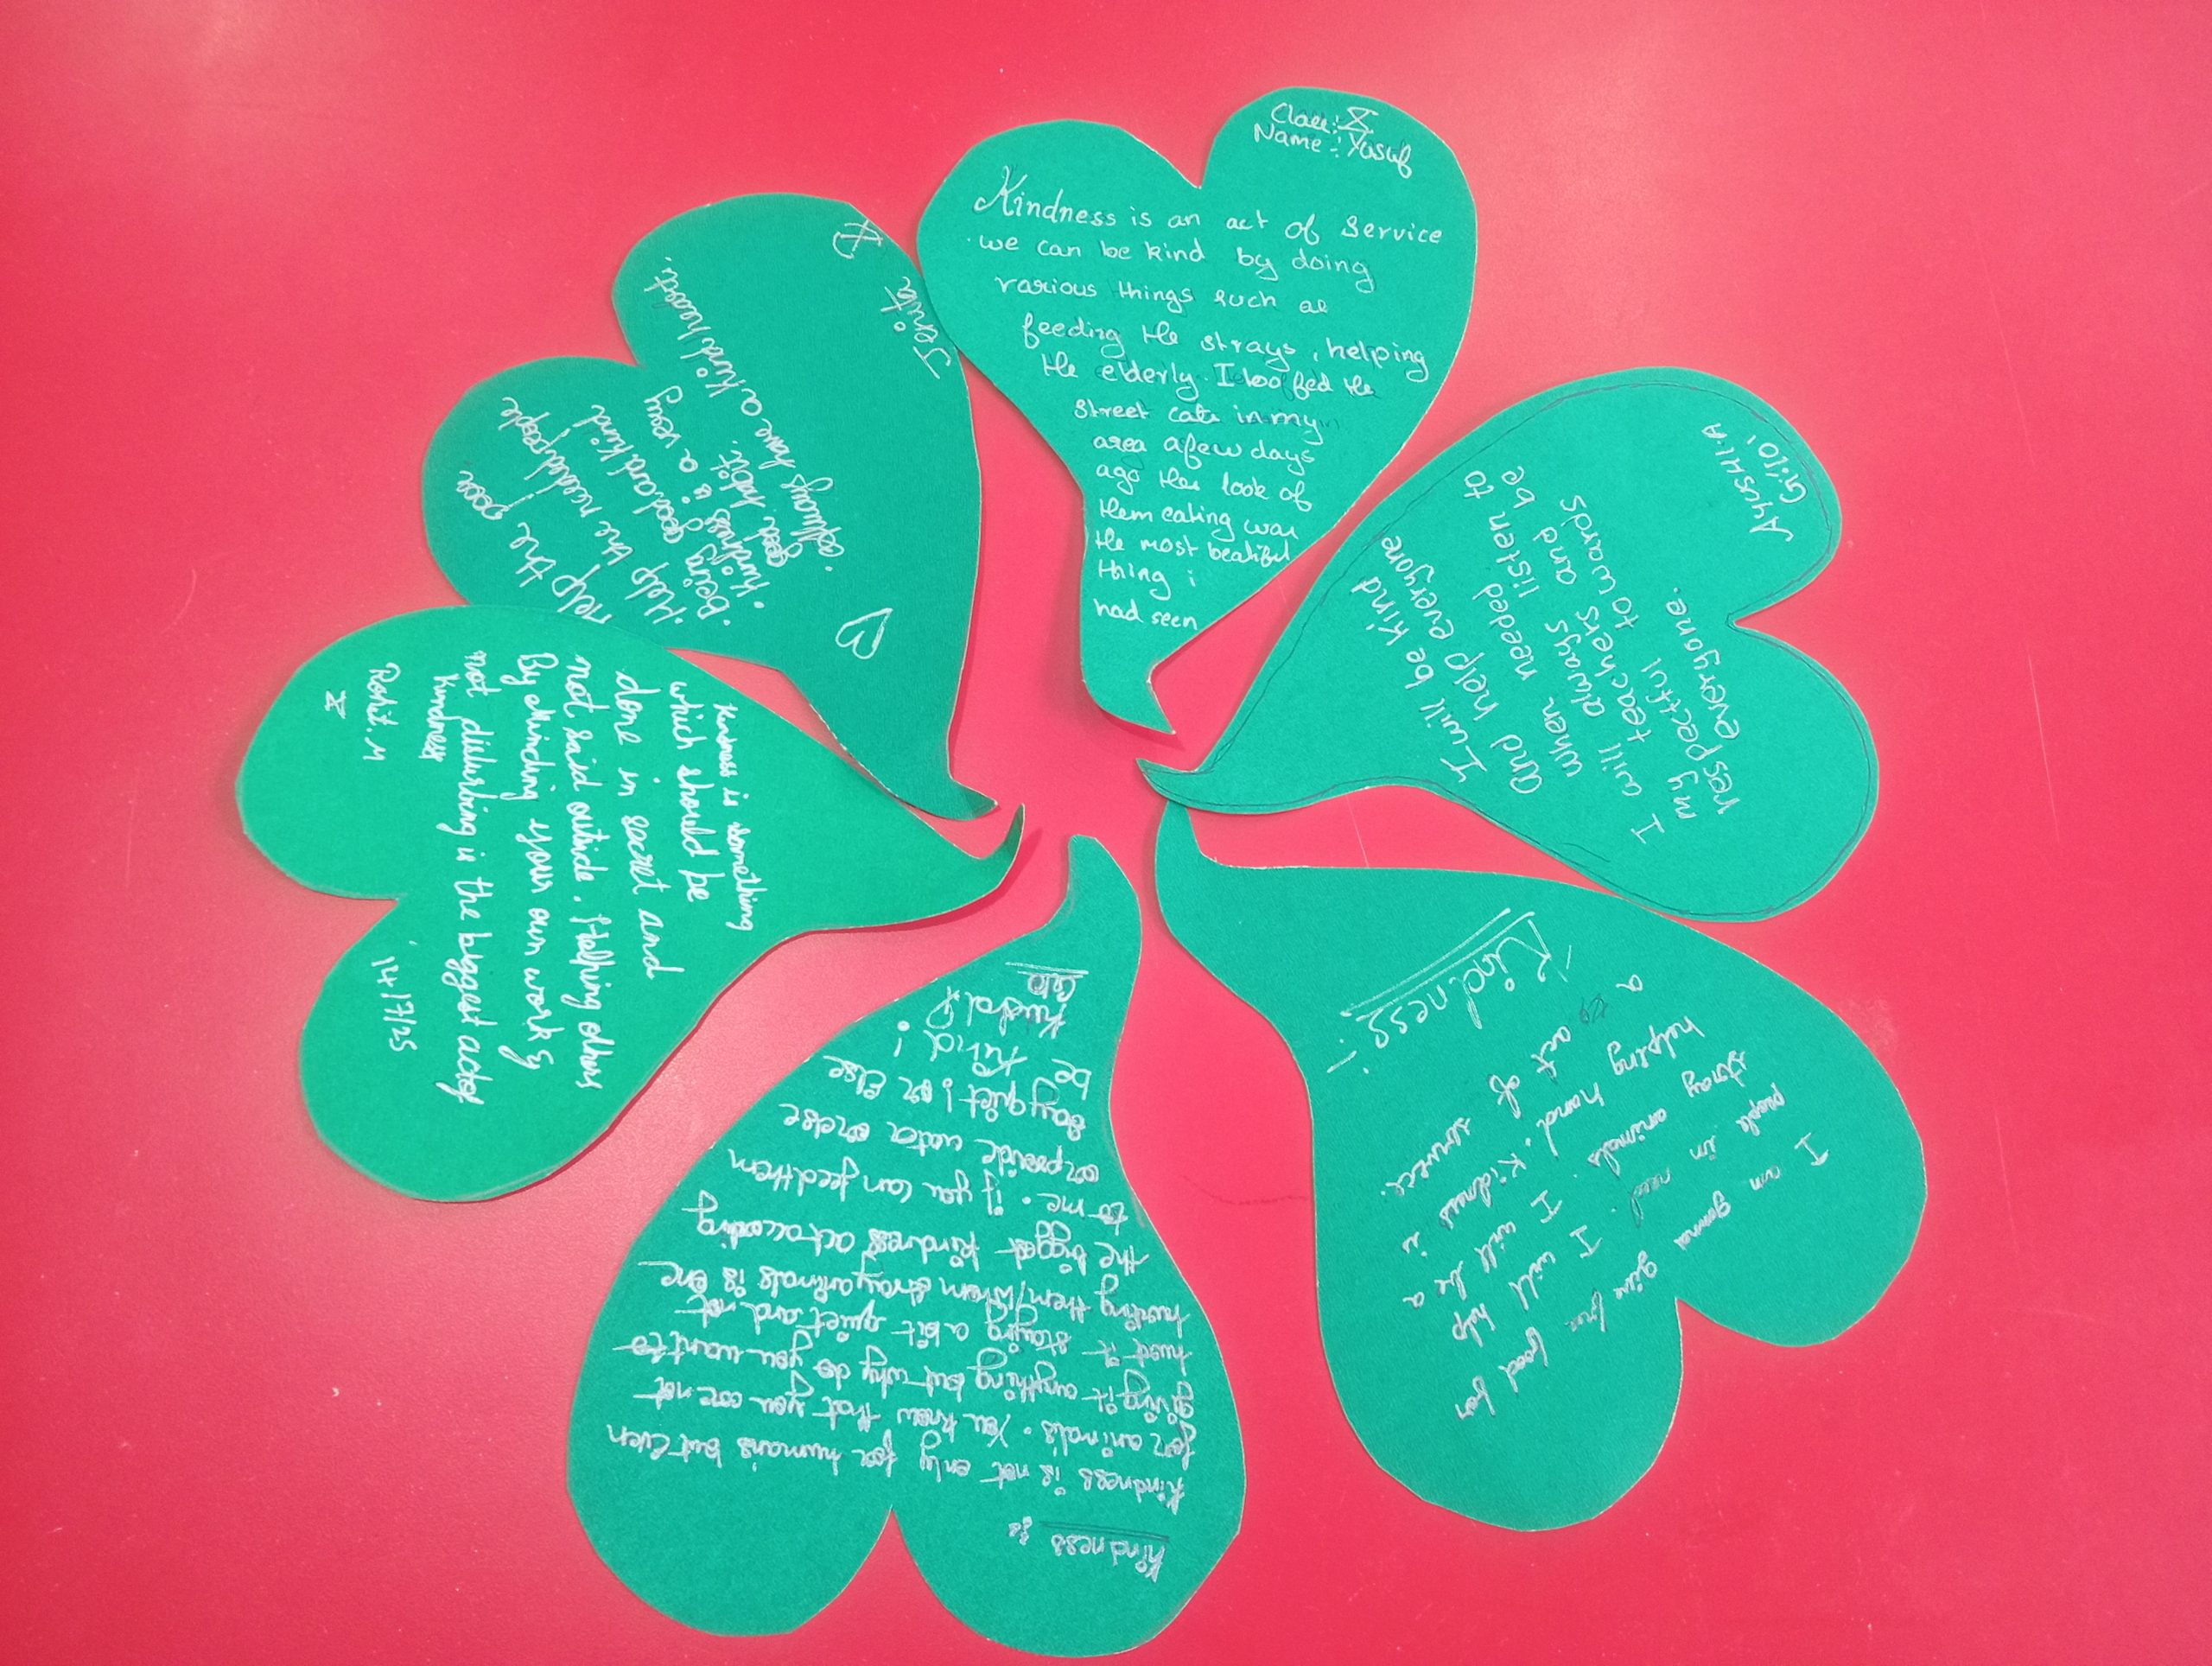 Class: X
Name :- Yusuf
Kindness is an act of service
we can be kind by doing
various things such as
feeding the strays, helping
the elderly. I too fed the
street cats in my
area a few days
ago the look of
them eating was
the most beatiful
thing i
had seen
Ayushi.A
Gr:10,
I will be kind
and help everyone
when needed
I will always listen to
my teachers and be
respectful towards
everyone.
Kindness :-
I am gonna give free food for
people in need. I will help
stray animals. I will be a
helping hand. Kidness is
a act of service.
Kindness is
Kindness is not only for humans but even
for animals. You know that you are not
giving it anything but why do you want to
hurt it staying a bit quiet and not
hurting them/when stray animals is one
the biggest kindness act according
to me. if you can feed them
or provide water or else
stay quiet; or Else
be kind!
Kiness is something
which should be
done in secret and
not said outside. Helping others
By minding your own work &
not disturbing is the biggest act of
kindness
Rohit.M
X
14/7/25
Jenita
X
Help the poor
Help the needed people
Being good and kind
Kindness is a very
good habit.
always have a kind heart.